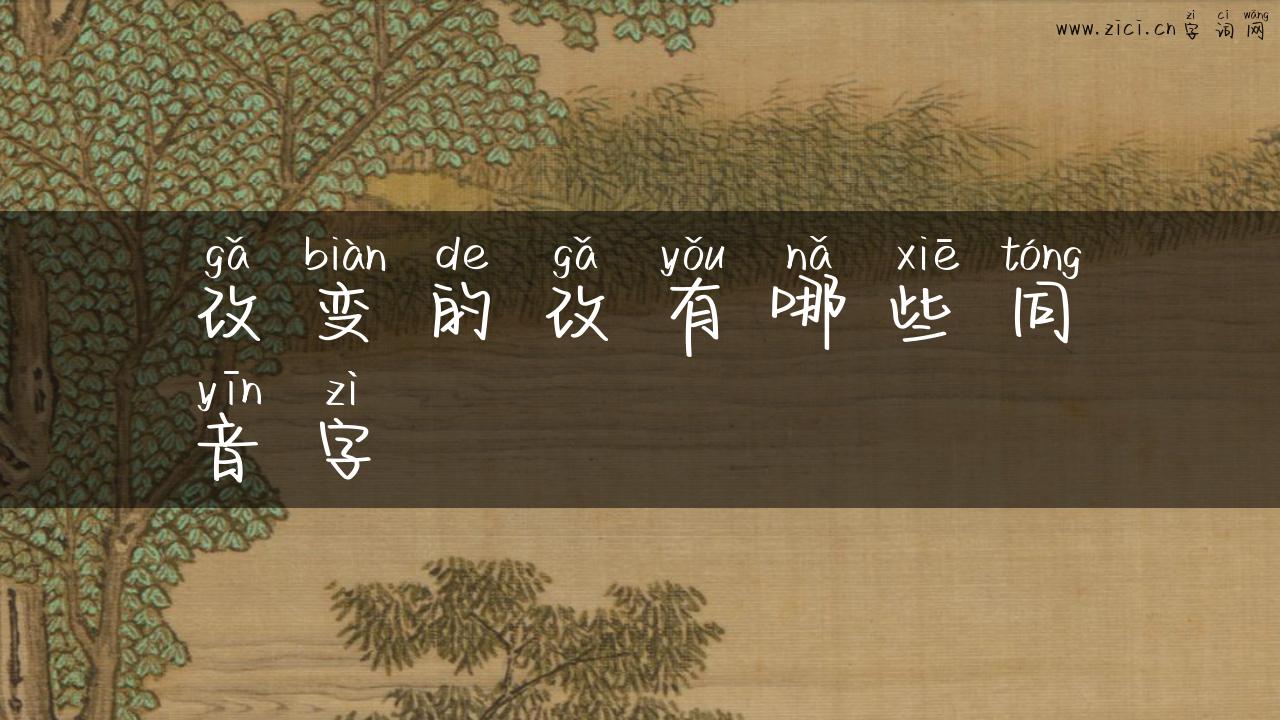 zì cí wǎng
www.zici.cn 字词网
gǎ biàn de gǎ yǒu nǎ xiē tóng
改变的改有哪些同
yīn zì
音字